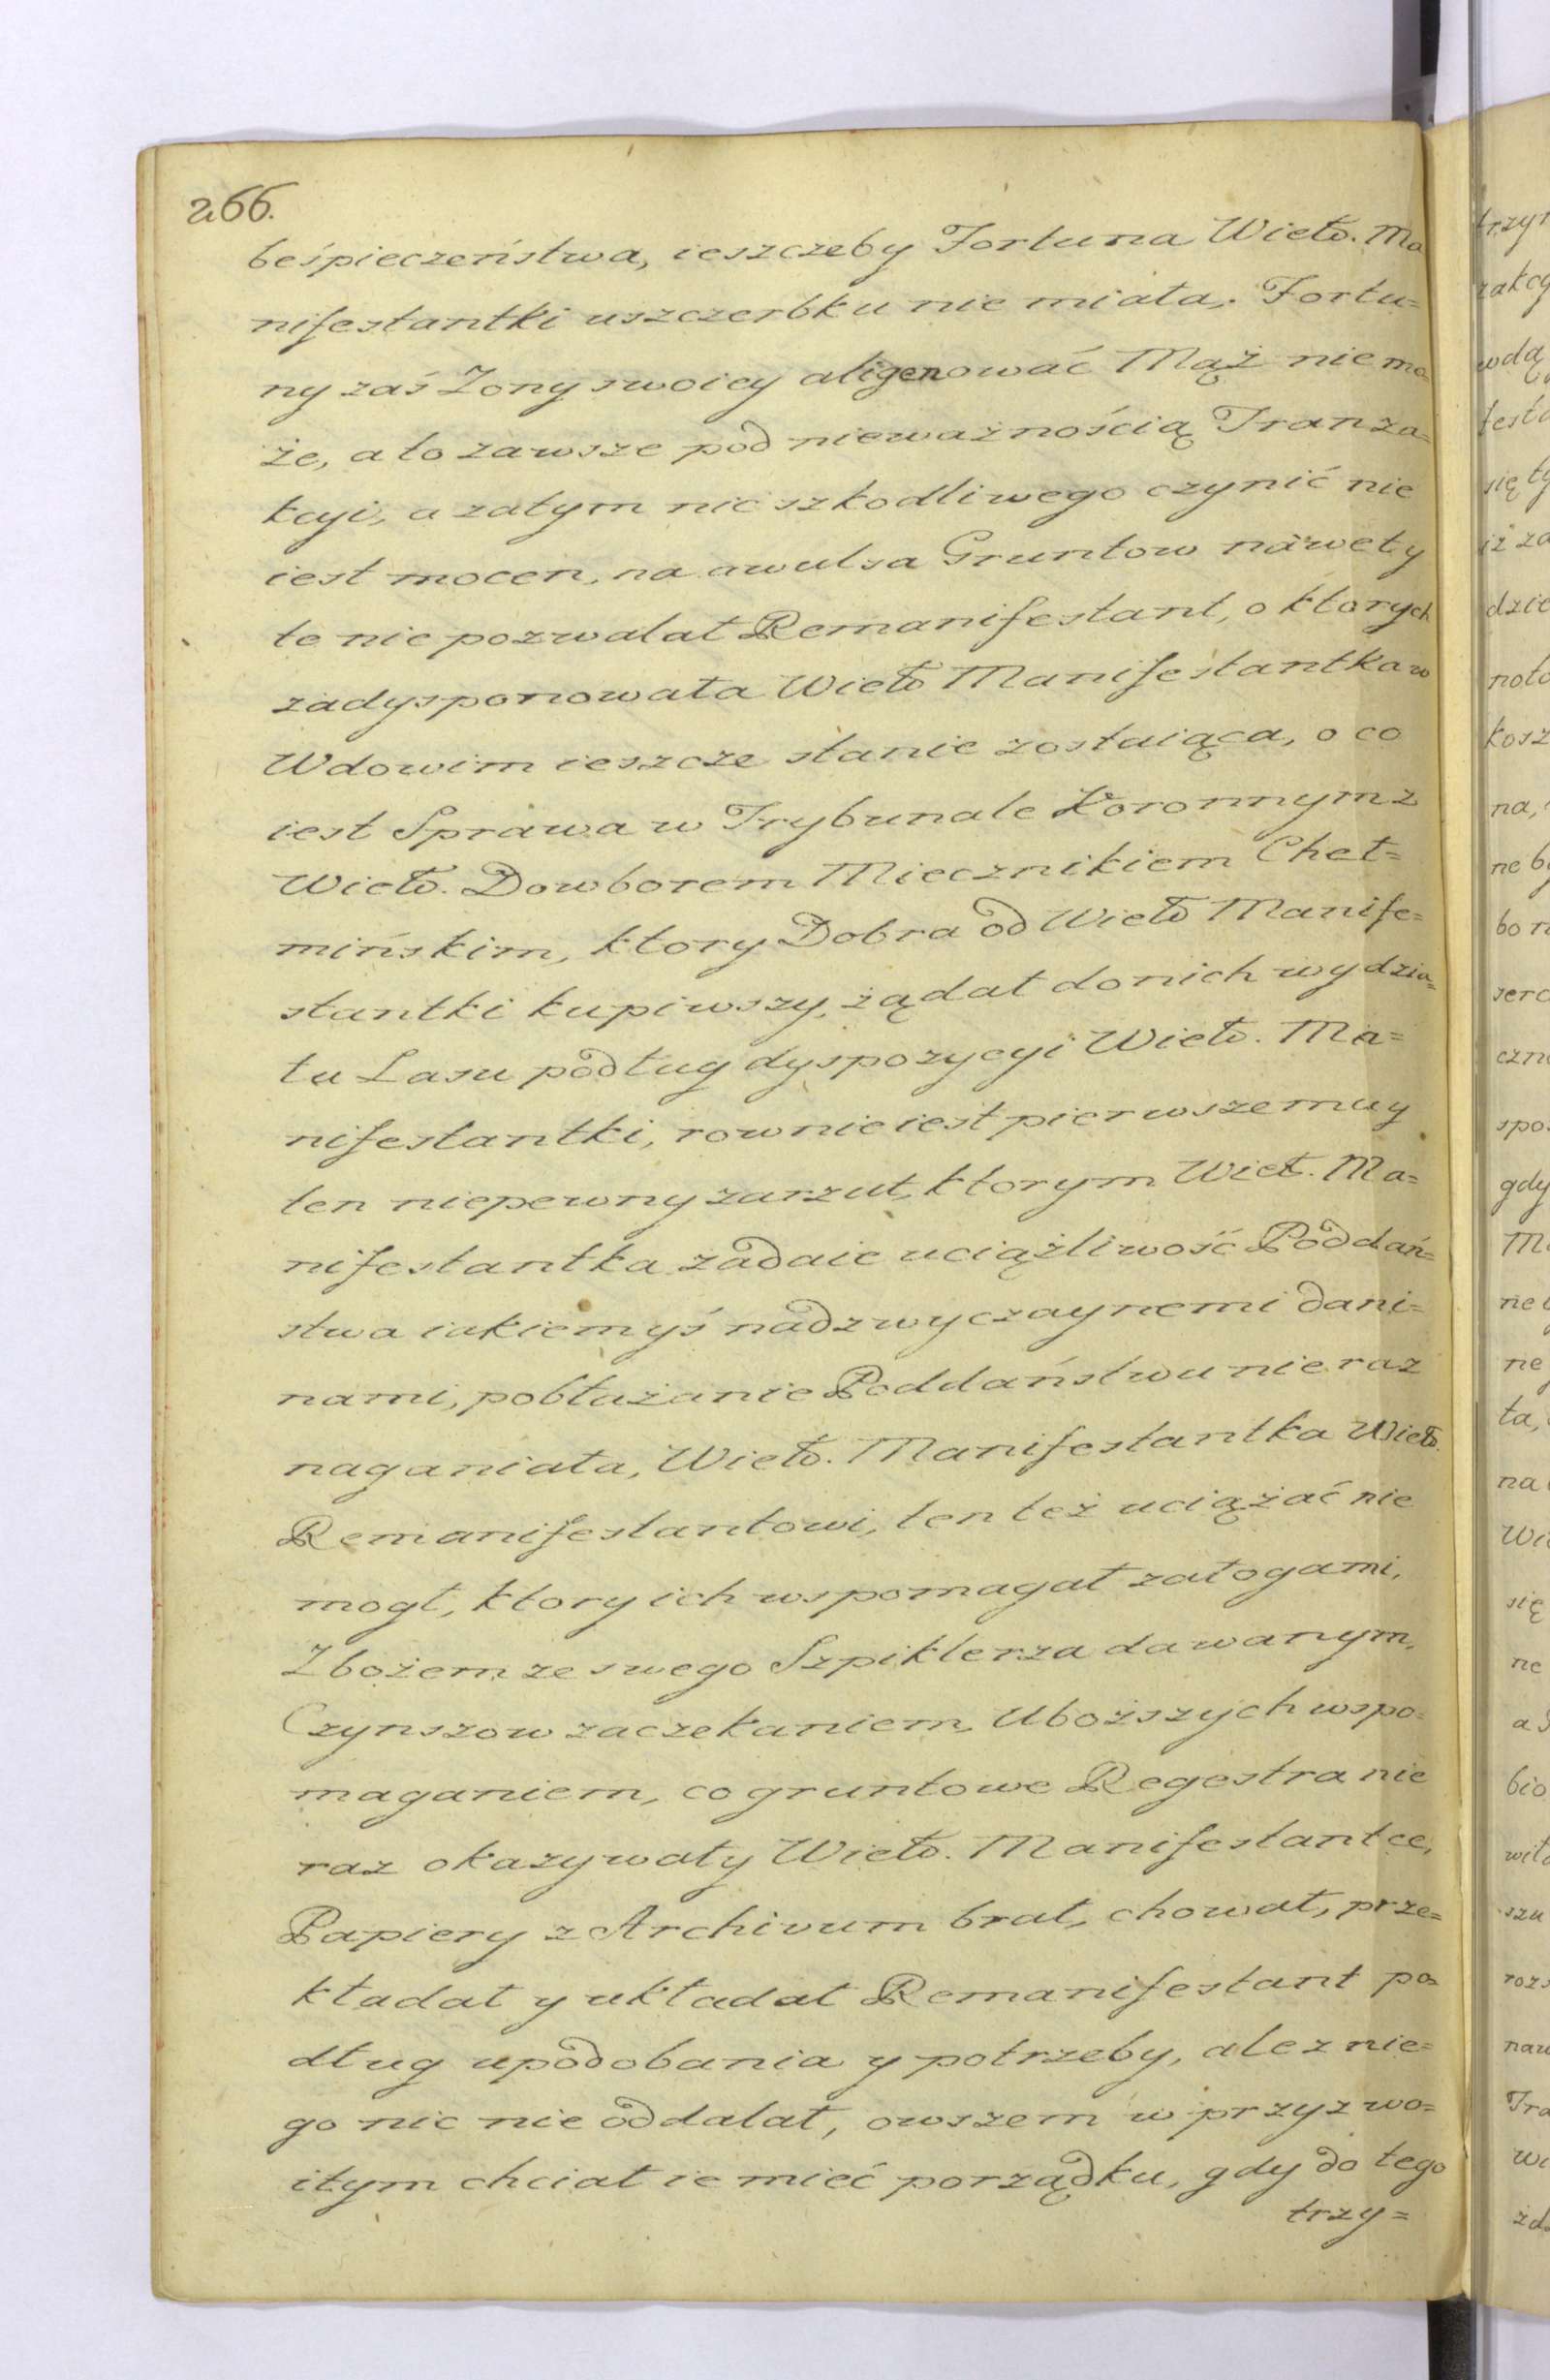 266.
beśpieczeństwa, ieszczeby Fortuna Wiel͠o. Ma
nifestantki uszczerbku nie miała. Fortu=
ny zaś Zony swoiey aligenować Mąż nie mo=
że, a to zawsze pod nieważnością Tranza=
kcyi, a zatym nic szkodliwego czynić nie
iest mocen, na awulsa Gruntow nawet y
te nie pozwalał Remanifestant, o ktorych
zadysponowała Wielo Manifestantka w
Wdowim ieszcze stanie zostaiąca, o co
iest Sprawa w Trybunale Koronnym z
Wielo. Dowborem Miecznikiem Cheł=
mińskim, ktory Dobra od Wielo Manife=
stantki kupiwszy, żądał do nich wydzia=
łu Lasu podług dyspozycyi Wielo. Ma=
nifestantki, rownie iest pierwszemu y
ten niepewny zarzut, ktorym Wiel. Ma=
nifestantka zadaie uciążliwość Poddań=
stwa iakiemyś nadzwyczaynemi dani=
nami, pobłużanie Poddaństwu nie raz
naganiała, Wielo. Manifestantka Wielo.
Remanifestantowi, ten też uciążać nie
mogł, ktory ich wspomagał załogami,
Zbożem ze swego Szpiklerza dawanym,
Czynszow zaczekaniem, Uboższych wspo=
maganiem, co gruntowe Regestra nie
raz okazywały Wielo. Manifestantce,
Papiery z Archivum brał, chował, prze=
kładał y układał Remanifestant po=
dług upodobania y potrzeby, ale z nie=
go nic nie oddalał, owszem w przyzwo=
itym chciał ie mieć porządku, gdy do tego
trzy=